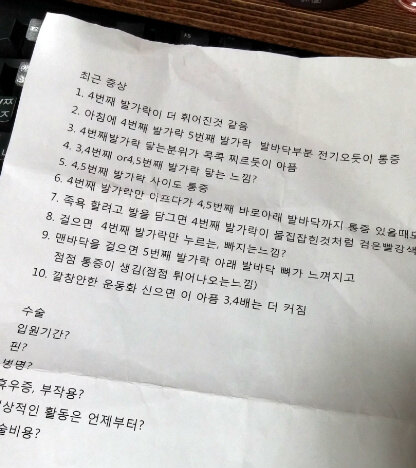 최근 증상
1. 4번째 발가락이 더 휘어진것 같음
2. 아침에 4번째 발가락 5번째 발가락  발바닥부분 전기오듯이 통증
3. 4번째발가락 닿는분위가 콕콕 찌르듯이 아픔
4. 3,4번째 or4,5번째 발가락 닿는 느낌?
5. 4,5번째 발가락 사이도 통증
6. 4번째 발가락만 아프다가 4,5번째 바로아래 발바닥까지 통증 있을때도
7. 족욕 할려고 발을 담그면 4번째 발가락이 물집잡힌것처럼 검은빨강색
8. 걸으면  4번째 발가락만 누르는, 빠지는느낌?
9. 맨바닥을 걸으면 5번째 발가락 아래 발바닥 뼈가 느껴지고
점점 통증이 생김(점점 튀어나오는느낌)
10. 깔창안한 운동화 신으면 이 아픔 3,4배는 더 커짐
수술
입원기간?
핀?
병명?
휴우증, 부작용?
상적인 활동은 언제부터?
술비용?